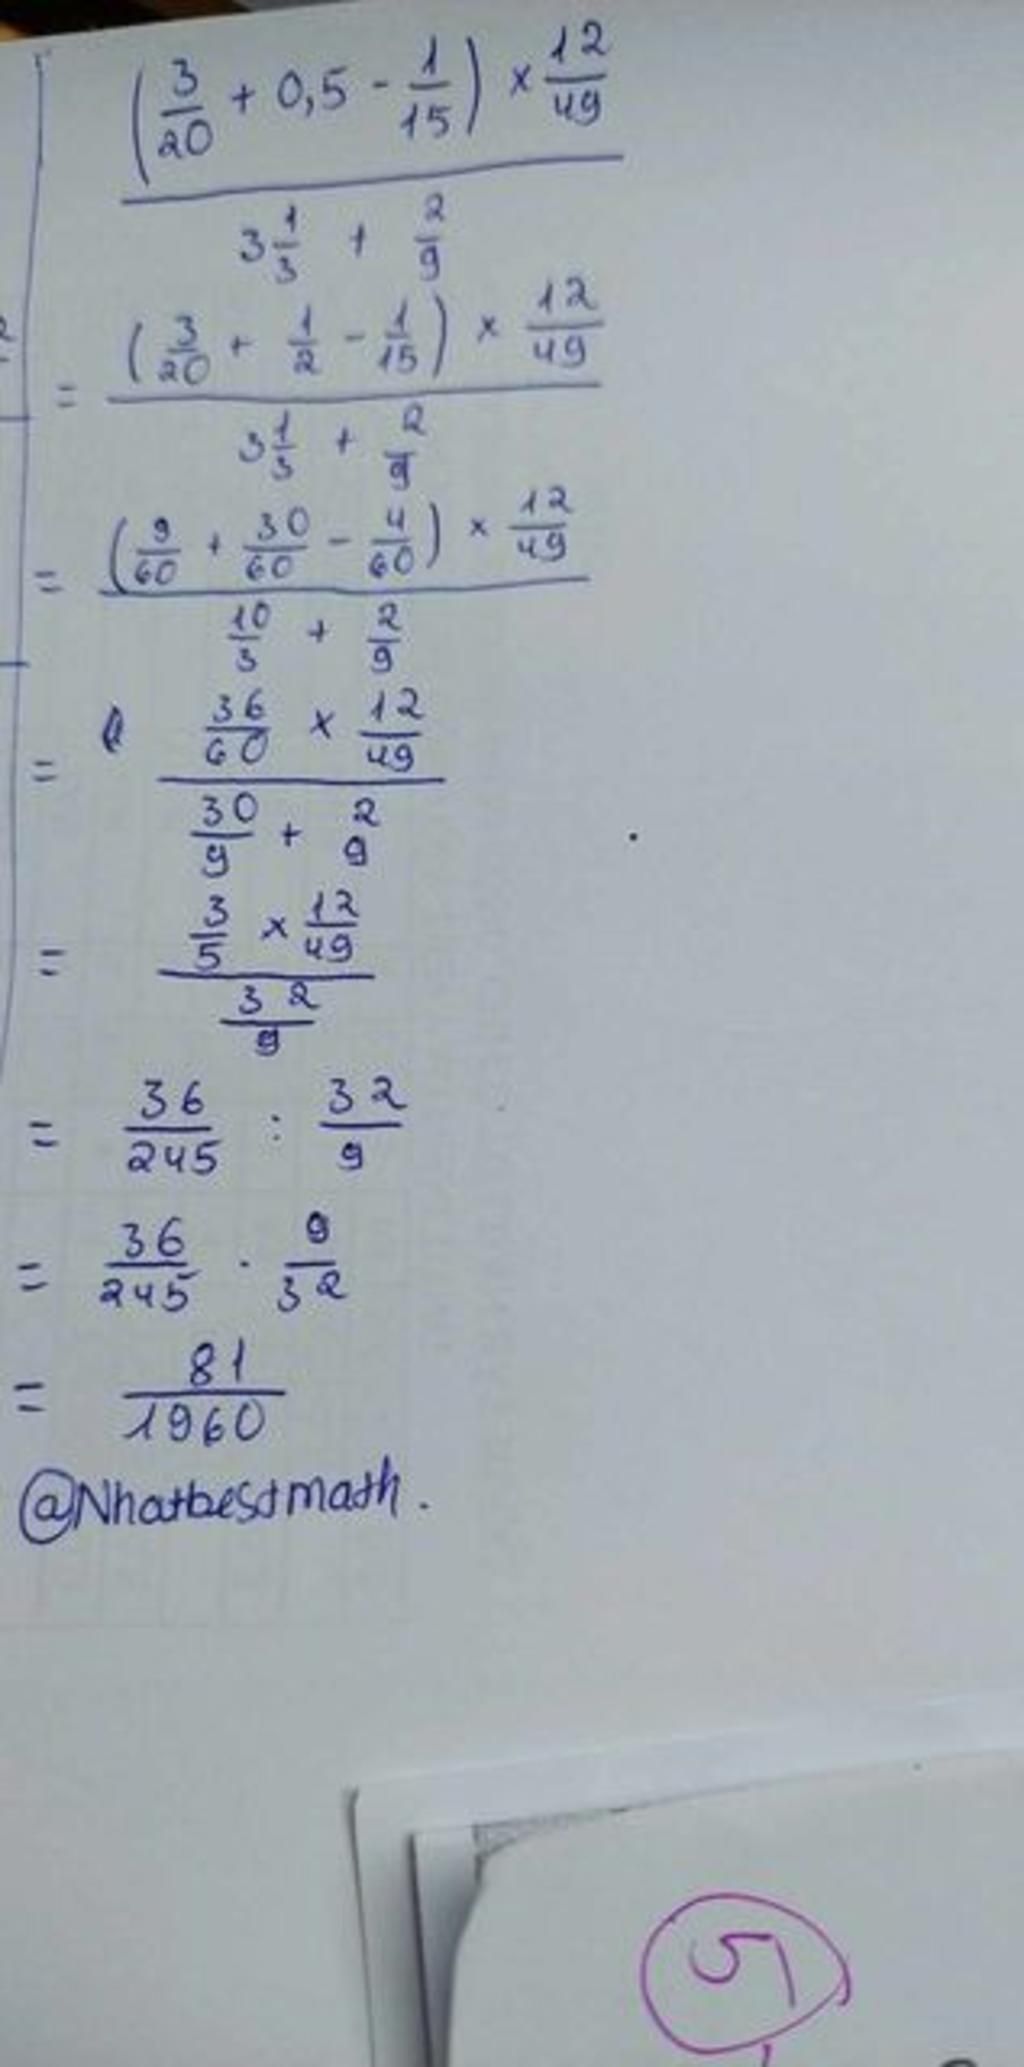 (3/20 + 0,5 - 1/15) × 12/49
3 1/3 + 2/9
= (3/20 + 1/2 - 1/15) × 12/49
3 1/3 + 2/9
= (9/60 + 30/60 - 4/60) × 12/49
10/3 + 2/9
= 36/60 × 12/49
30/9 + 2/9
= 3/5 × 12/49
32/9
= 36/245 : 32/9
= 36/245 · 9/32
= 81/1960
@Nhatbestmath.
5